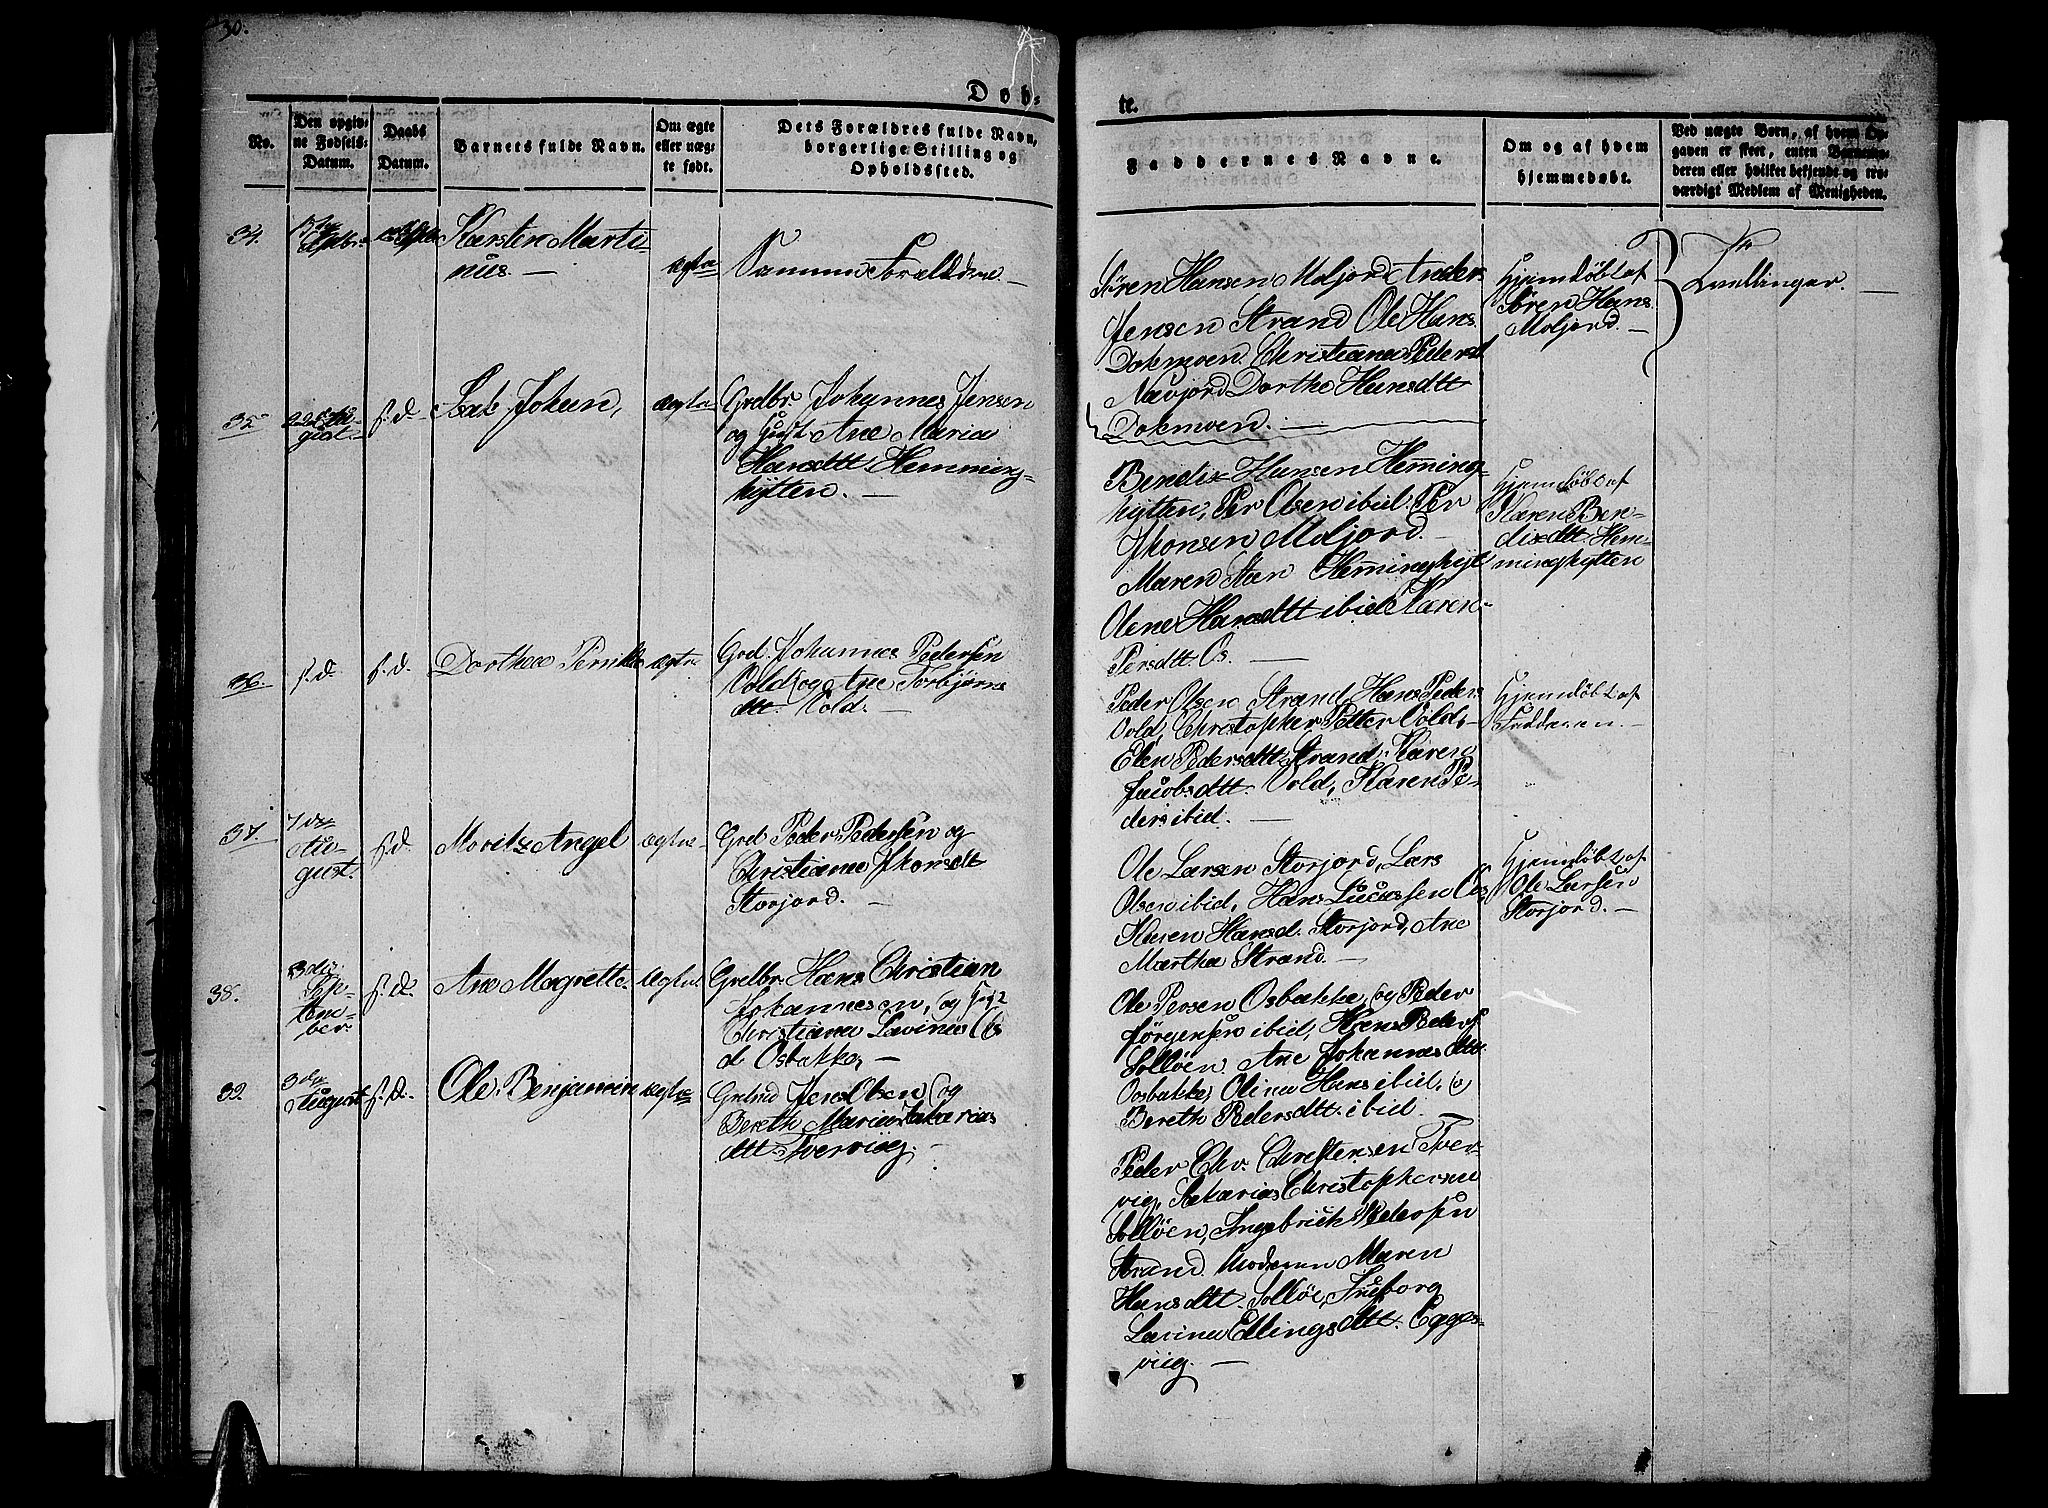 30.
Døb-
te.
No.
Den opgiv-
ne Fødsels-
Datum.
Daabs
Datum.
Barnets fulde Navn.
Om ægte
eller uæg-
te født.
Dets Forældres fulde Navn,
borgerlige Stilling og
Opholdssted.
Faddernes Navne.
Om og af hvem
hjemmedøbt.
Ved uægte Børn, af hvem Op-
gaven er skeet, enten Barnemo-
deren eller hvilket bekjendt og tro-
værdigt Medlem af Menigheden.
34.
Karsten Marti-
nus. —
ægte
Samme Forældre. —
Søren Hansen Moljord Anders
Jensen Strand Ole Hans.
Dokmoen. Christiana Pedersd
Navjord Dorthe Hansdtt
Dokmoen. —
Hjemdøbt af
Søren Hans.
Moljord. —
Tvillinger. —
35
Au-
gust
s. d.
Johan,
ægte
Grdbr Johannes Jensen
og Hust Ane Maria
Hansdtt Hemming-
hytten. —
Bendix Hansen Heming-
hytten, Per Olsen ibid. Per
Jhonsen Moljord. —
Maren Hemminghyt
Olene Hansdtt ibid Karen
Persdtt. Os. —
Hjemdøbt af
Karen Ben-
dixdtt Hem-
minghytten
36.
s. d.
s. d.
Dorthea
ægte
Grd. Johannes Pedersen
Vold, og Ane Torbjørns
dtt. Vold. —
Peder Olsen Strand, Hans Peders
Vold, Christopher Petter Vold,
Elen Pedersdtt. Strand, Karen
Jacobsdtt. Vold, Karen Pe-
ders ibid. —
Hjemdøbt af
Fadderen. —
37.
7de
Au-
gust.
s. d.
Moritz Angel
ægte
Grd Peder Pedersen og
Christiane Jhonsdt
Storjord. —
Ole Larsen Storjord, Lars
Olsen ibid, Hans Lucassen Os,
Karen Hansd. Storjord, Ane
Martha Strand. —
Hjemdøbt af
Ole Larsen
Storjord. —
38.
3die
Sep-
tem-
ber
s. d.
Ane Magrette
ægte
Grdbr. Hans Christian
Johannesen, og
Christiane Lavina
d Osbakke, —
Ole Persen Osbakke, og Peder
Jørgensen ibid, Hans Peders
Solløen, Ane Johannesdtt.
Osbakke, Olina Hans ibid, og
Bereth Pedersdtt. ibid. —
39.
3die
August
s. d.
Ole Benjamin
ægte
Jens Olsen og
Bereth Maria Zakarias
dtt. Tverviig. —
Peder Chr. Christensen Tver-
vig, Zakarias Christophersen
Solløen, Ingebrict Pedersen
Strand. Moderen Maren
Hansdtt. Solløe,
Lavina Ellingsdtt. Egges-
viig. —